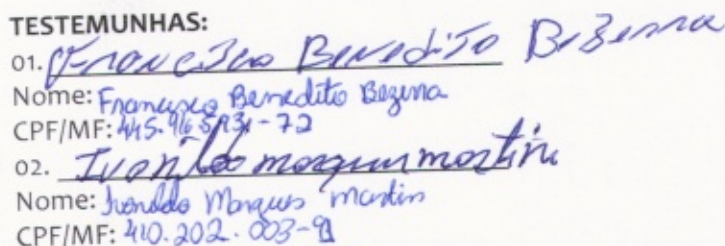 TESTEMUNHAS:
01. Francisco Benedito Bezerra
Nome: Francisco Benedito Bezerra
CPF/MF: 445.965.931-72
02. Ivonildo marques martins
Nome: Ivonildo Marques Martins
CPF/MF: 410.202.003-91